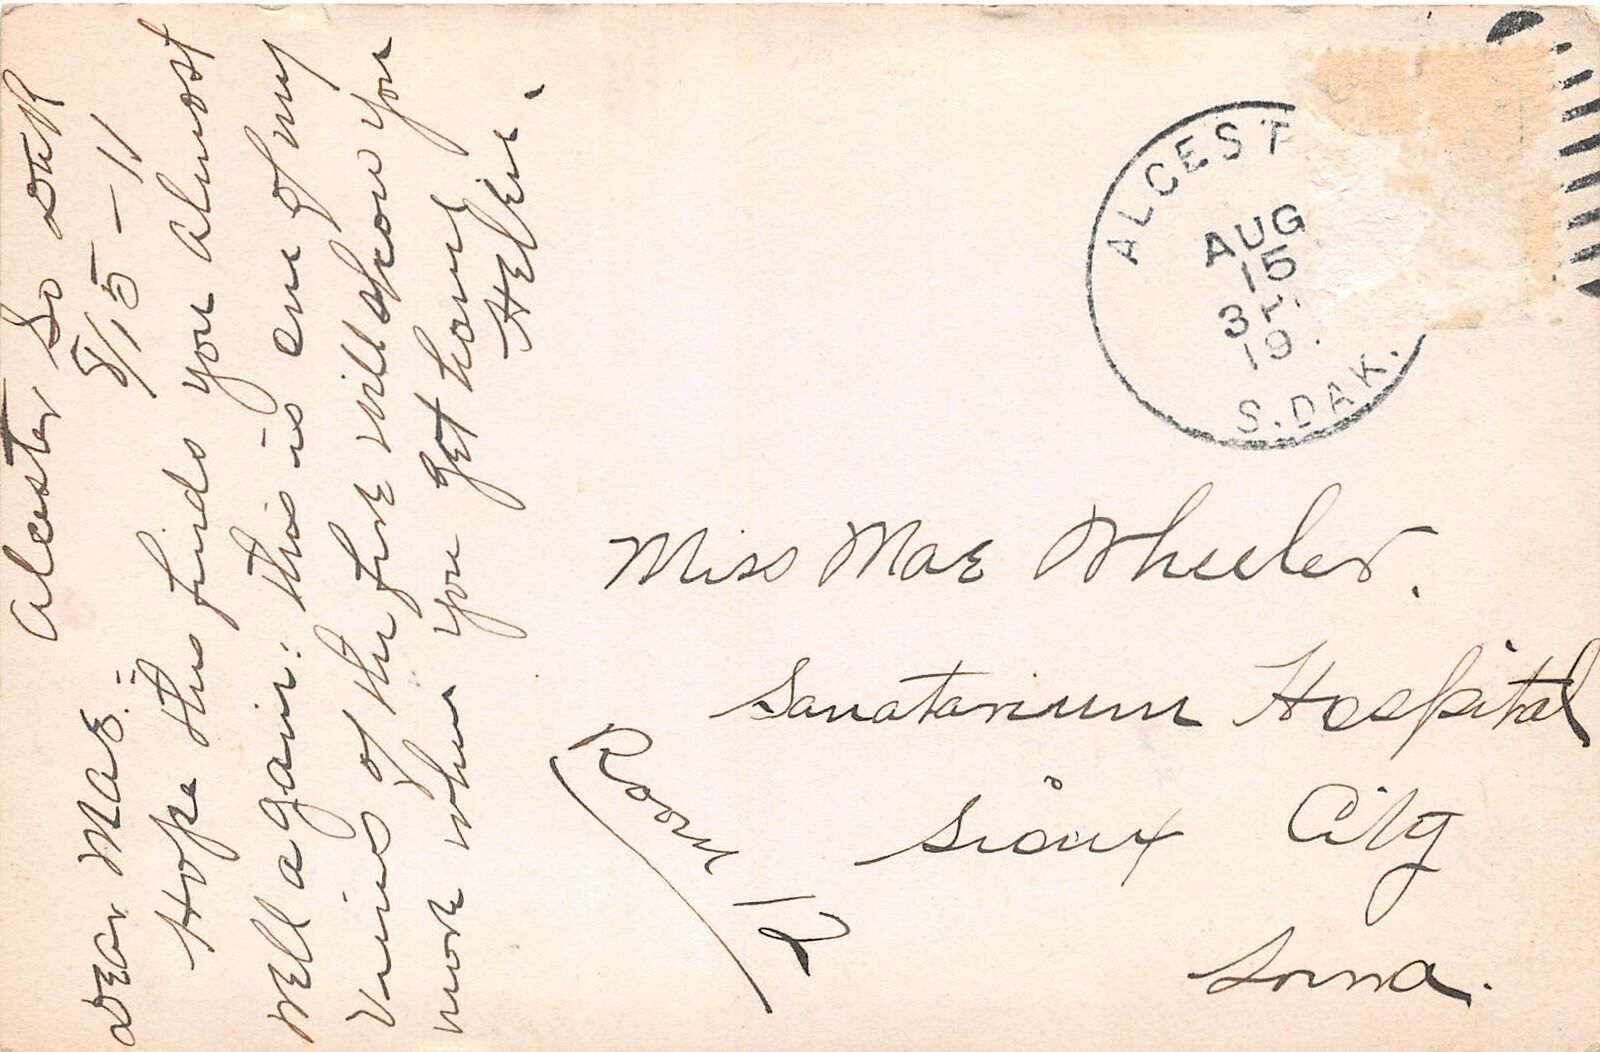 Alcester So Dak
8/15-11
Dear Mae:-
Hope this finds you almost
well again: this is one of my
views of the fire will show you
more when you get home
Helen.
ALCEST
AUG
15
3
19
S. DAK.
Miss Mae Wheeler.
Sanatarium Hospital
Sioux City
Iowa.
Room 12